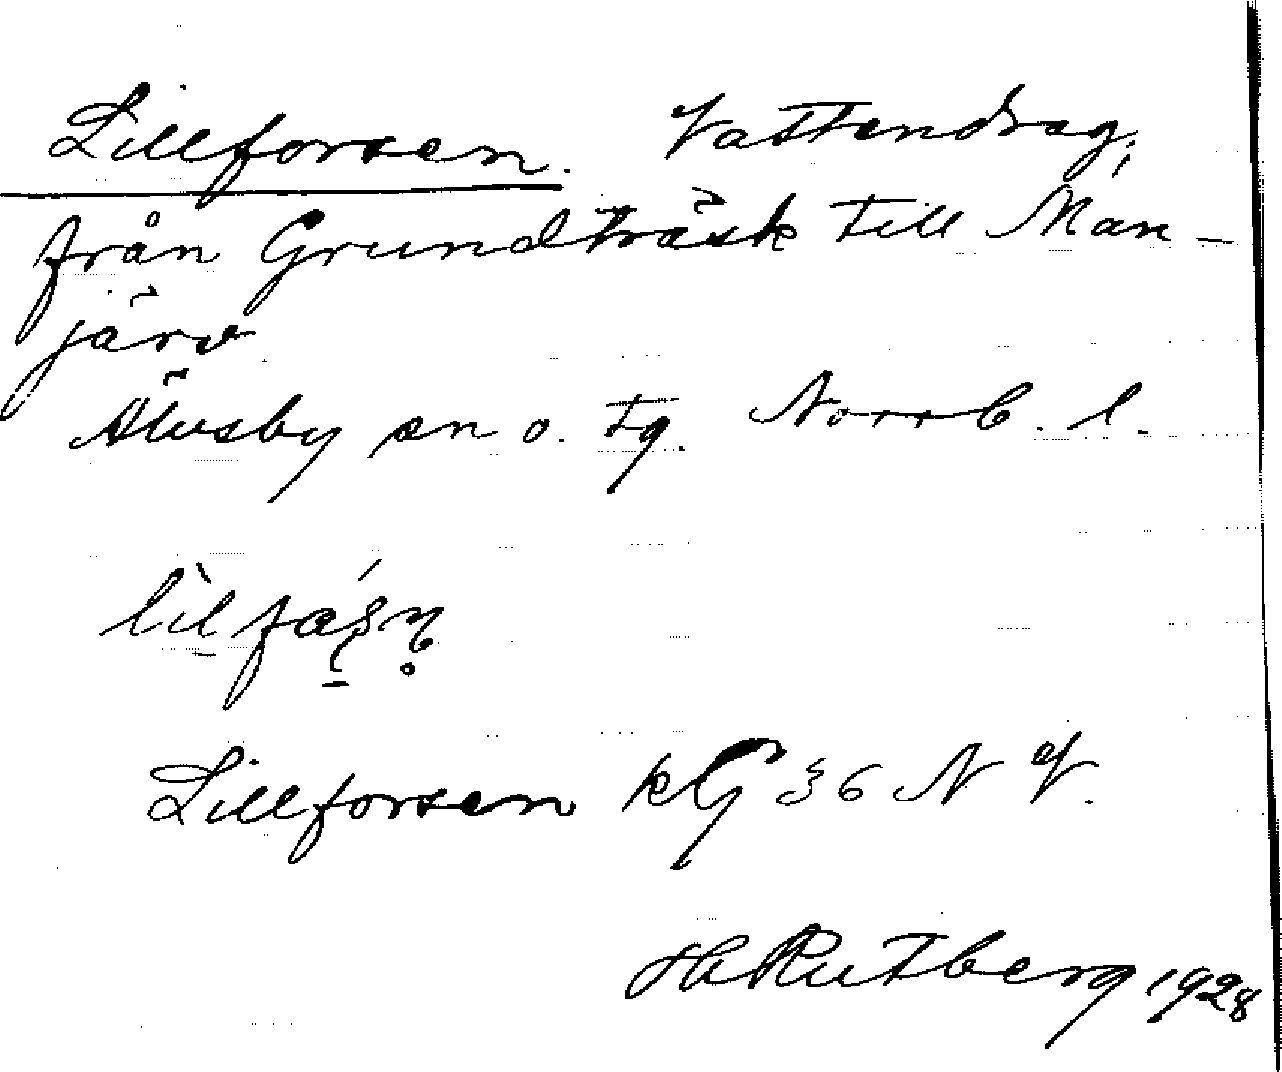 Lillforsen. Vattendrag,
från Grundträsk till Man-
järv
Älvsby sn o. tg. Norrb. l.
Lillforsen kG 36 N V.
H Rutberg 1928